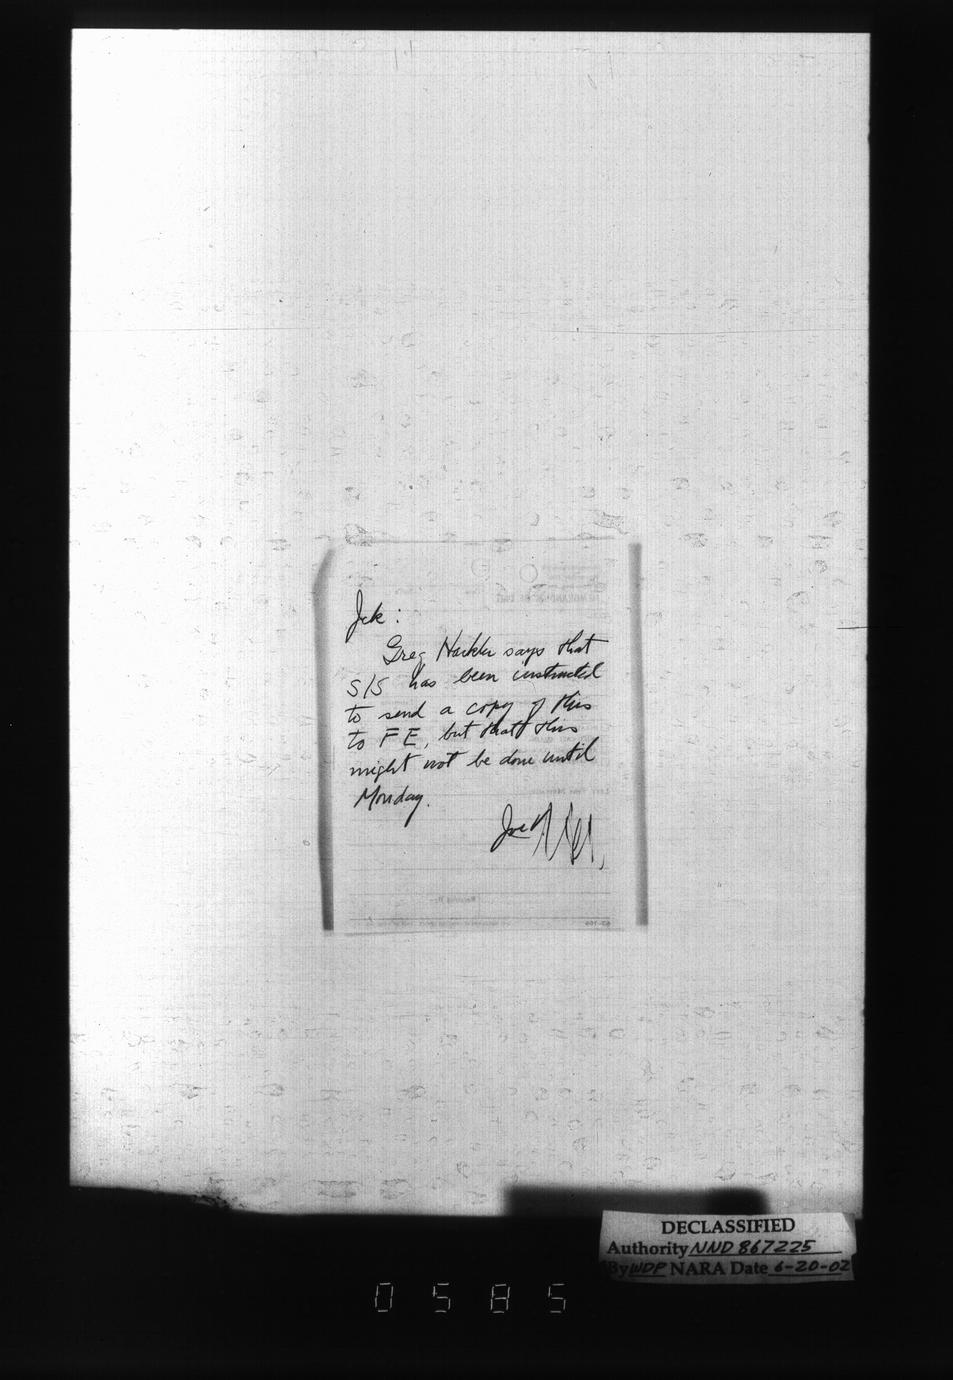 Jck :
Greg Hackler says that
S/S has been instructed
to send a copy of this
to FE, but that this
might not be done until
Monday.
Joe N
DECLASSIFIED
Authority NND 867225
By WDP NARA Date 6-20-02
0585